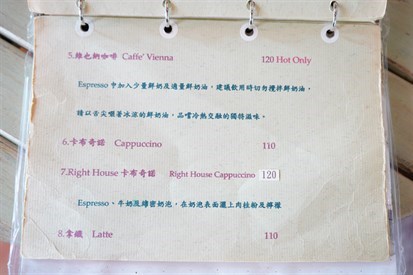 5.維也納咖啡 Caffe' Vienna 120 Hot Only
Espresso 中加入少量鮮奶及適量鮮奶油，建議飲用時切勿攪拌鮮奶油，
請以舌尖嚐著冰涼的鮮奶油，品嚐冷熱交融的獨特滋味。
6.卡布奇諾 Cappuccino 110
7.Right House 卡布奇諾 Right House Cappuccino 120
Espresso、牛奶及綿密奶泡，在奶泡表面灑上肉桂粉及檸檬
8.拿鐵 Latte 110